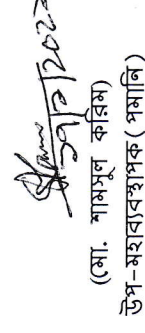 (মো. শামসুল করিম)
উপ-মহাব্যবস্থাপক (পমানি)